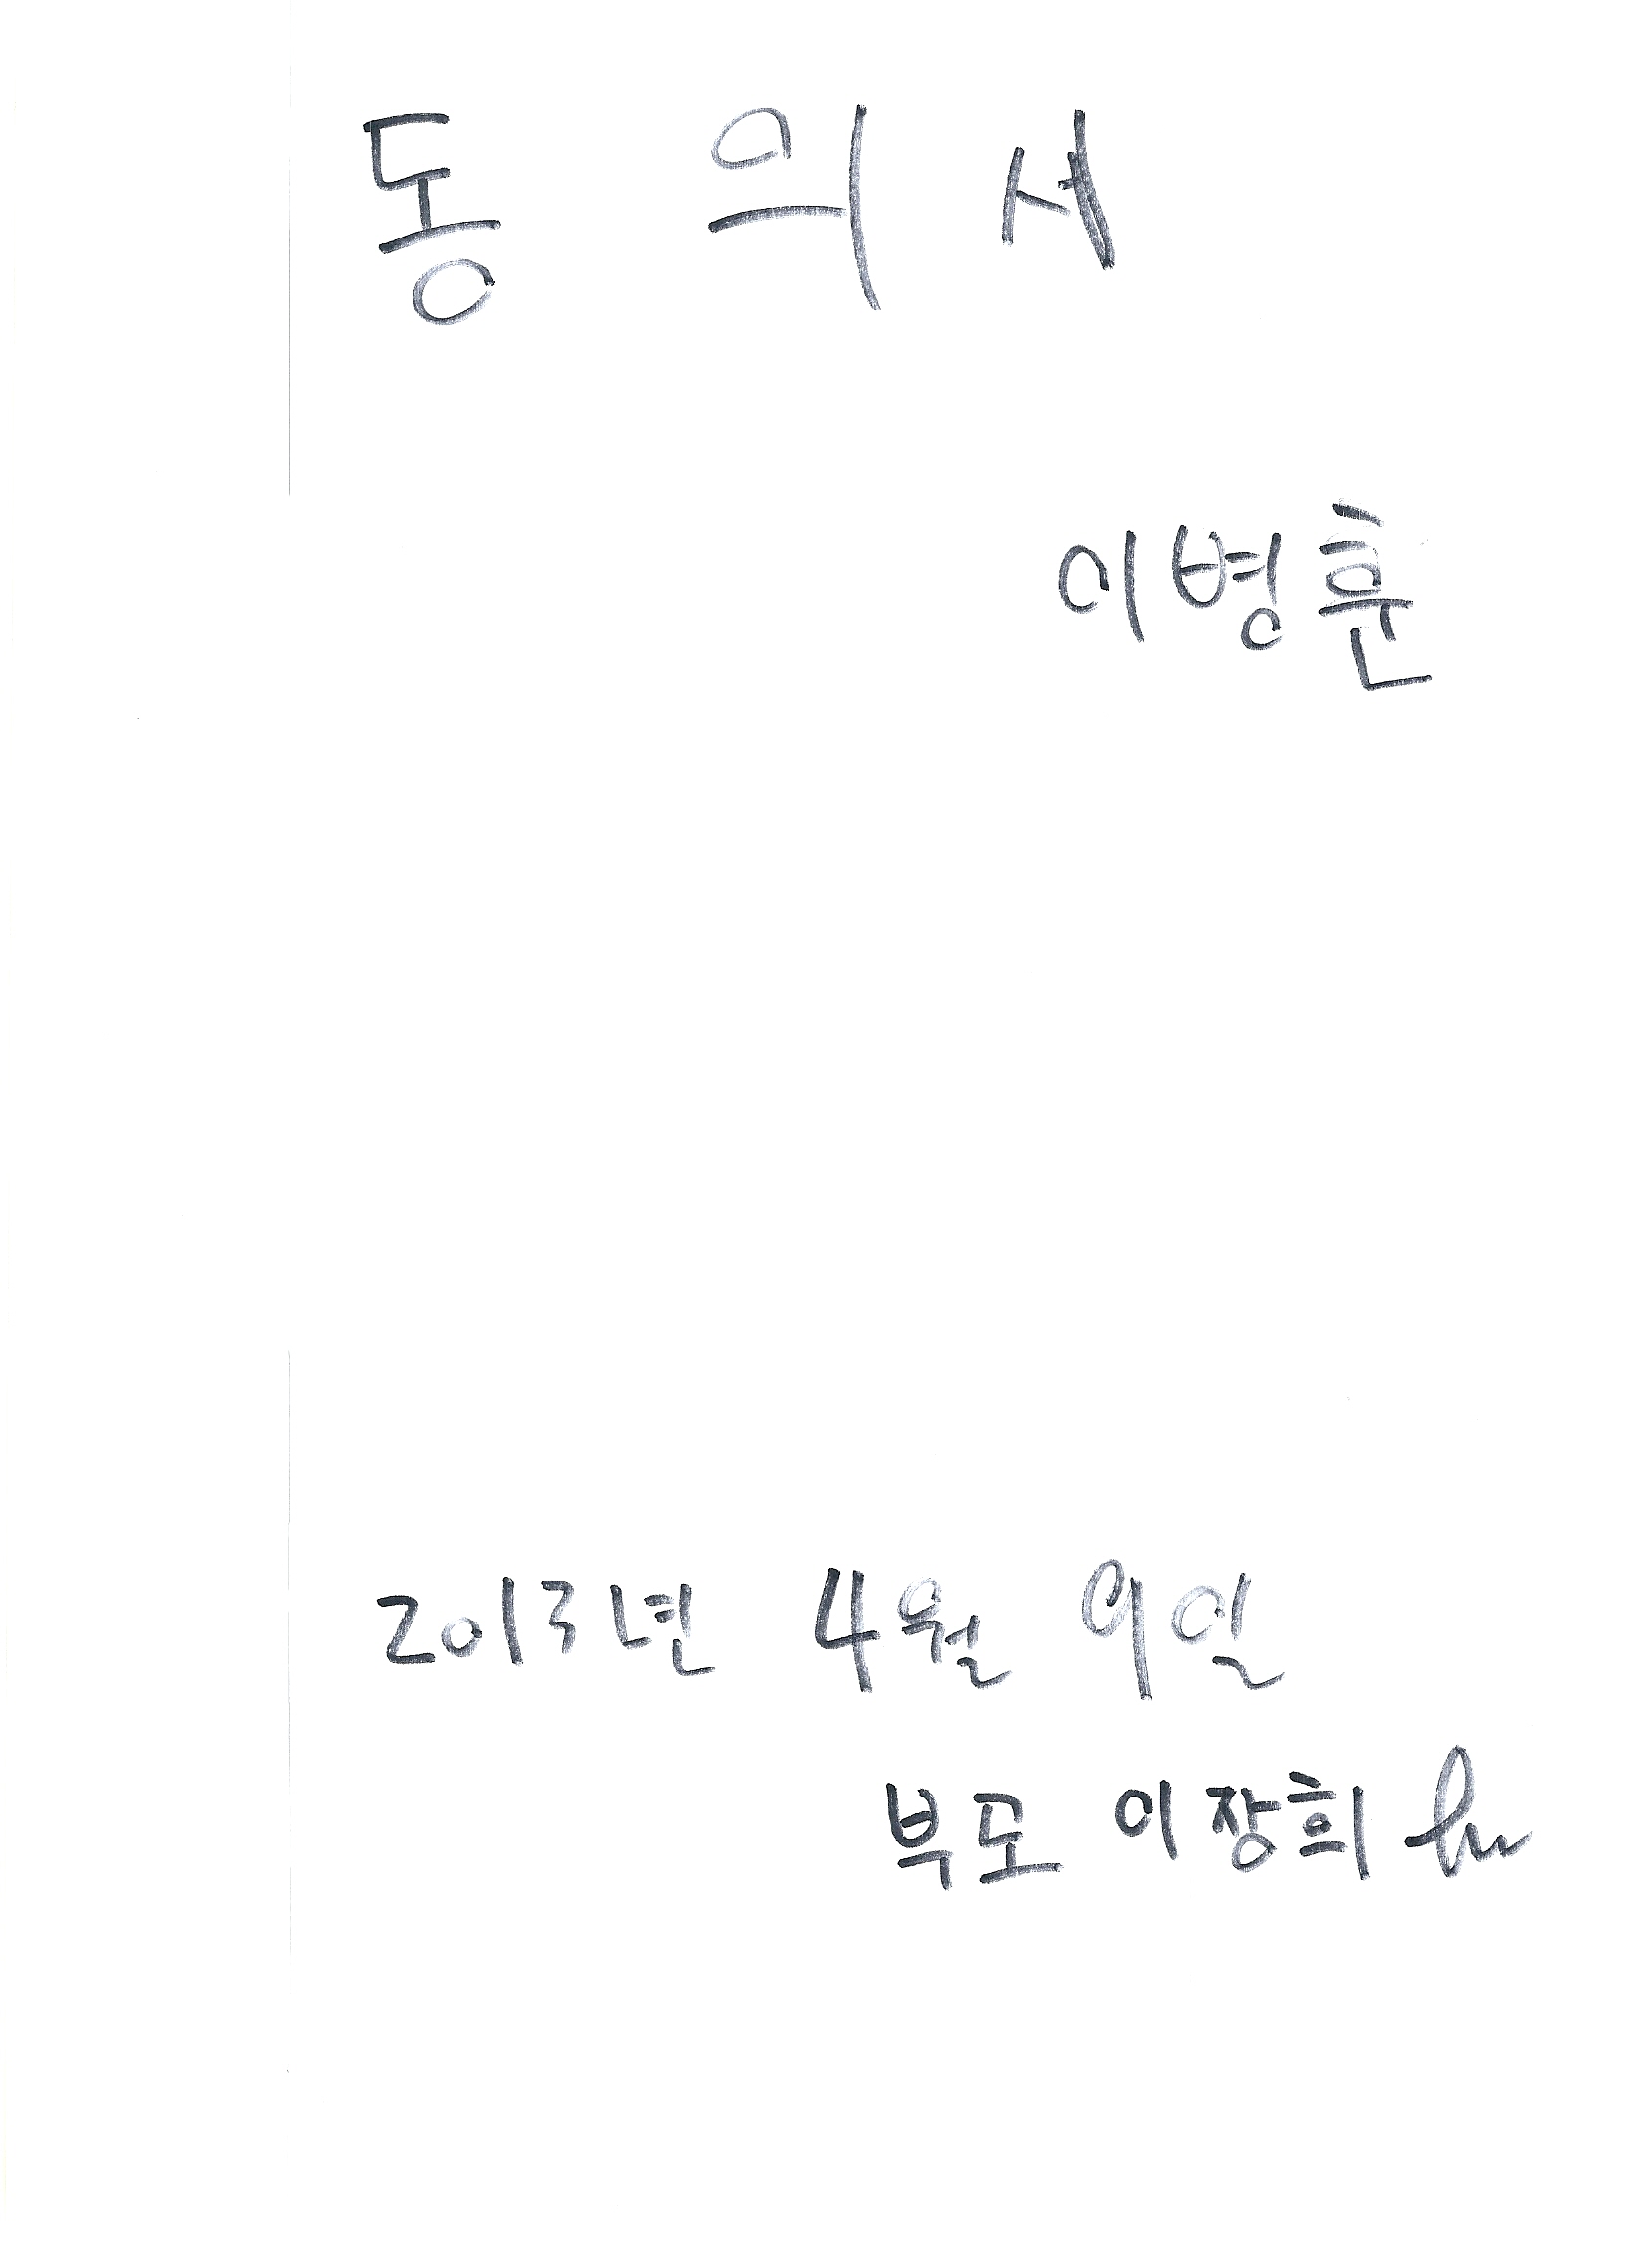 동 의 서
이병훈
2013년 4월 9일
부모 이장희